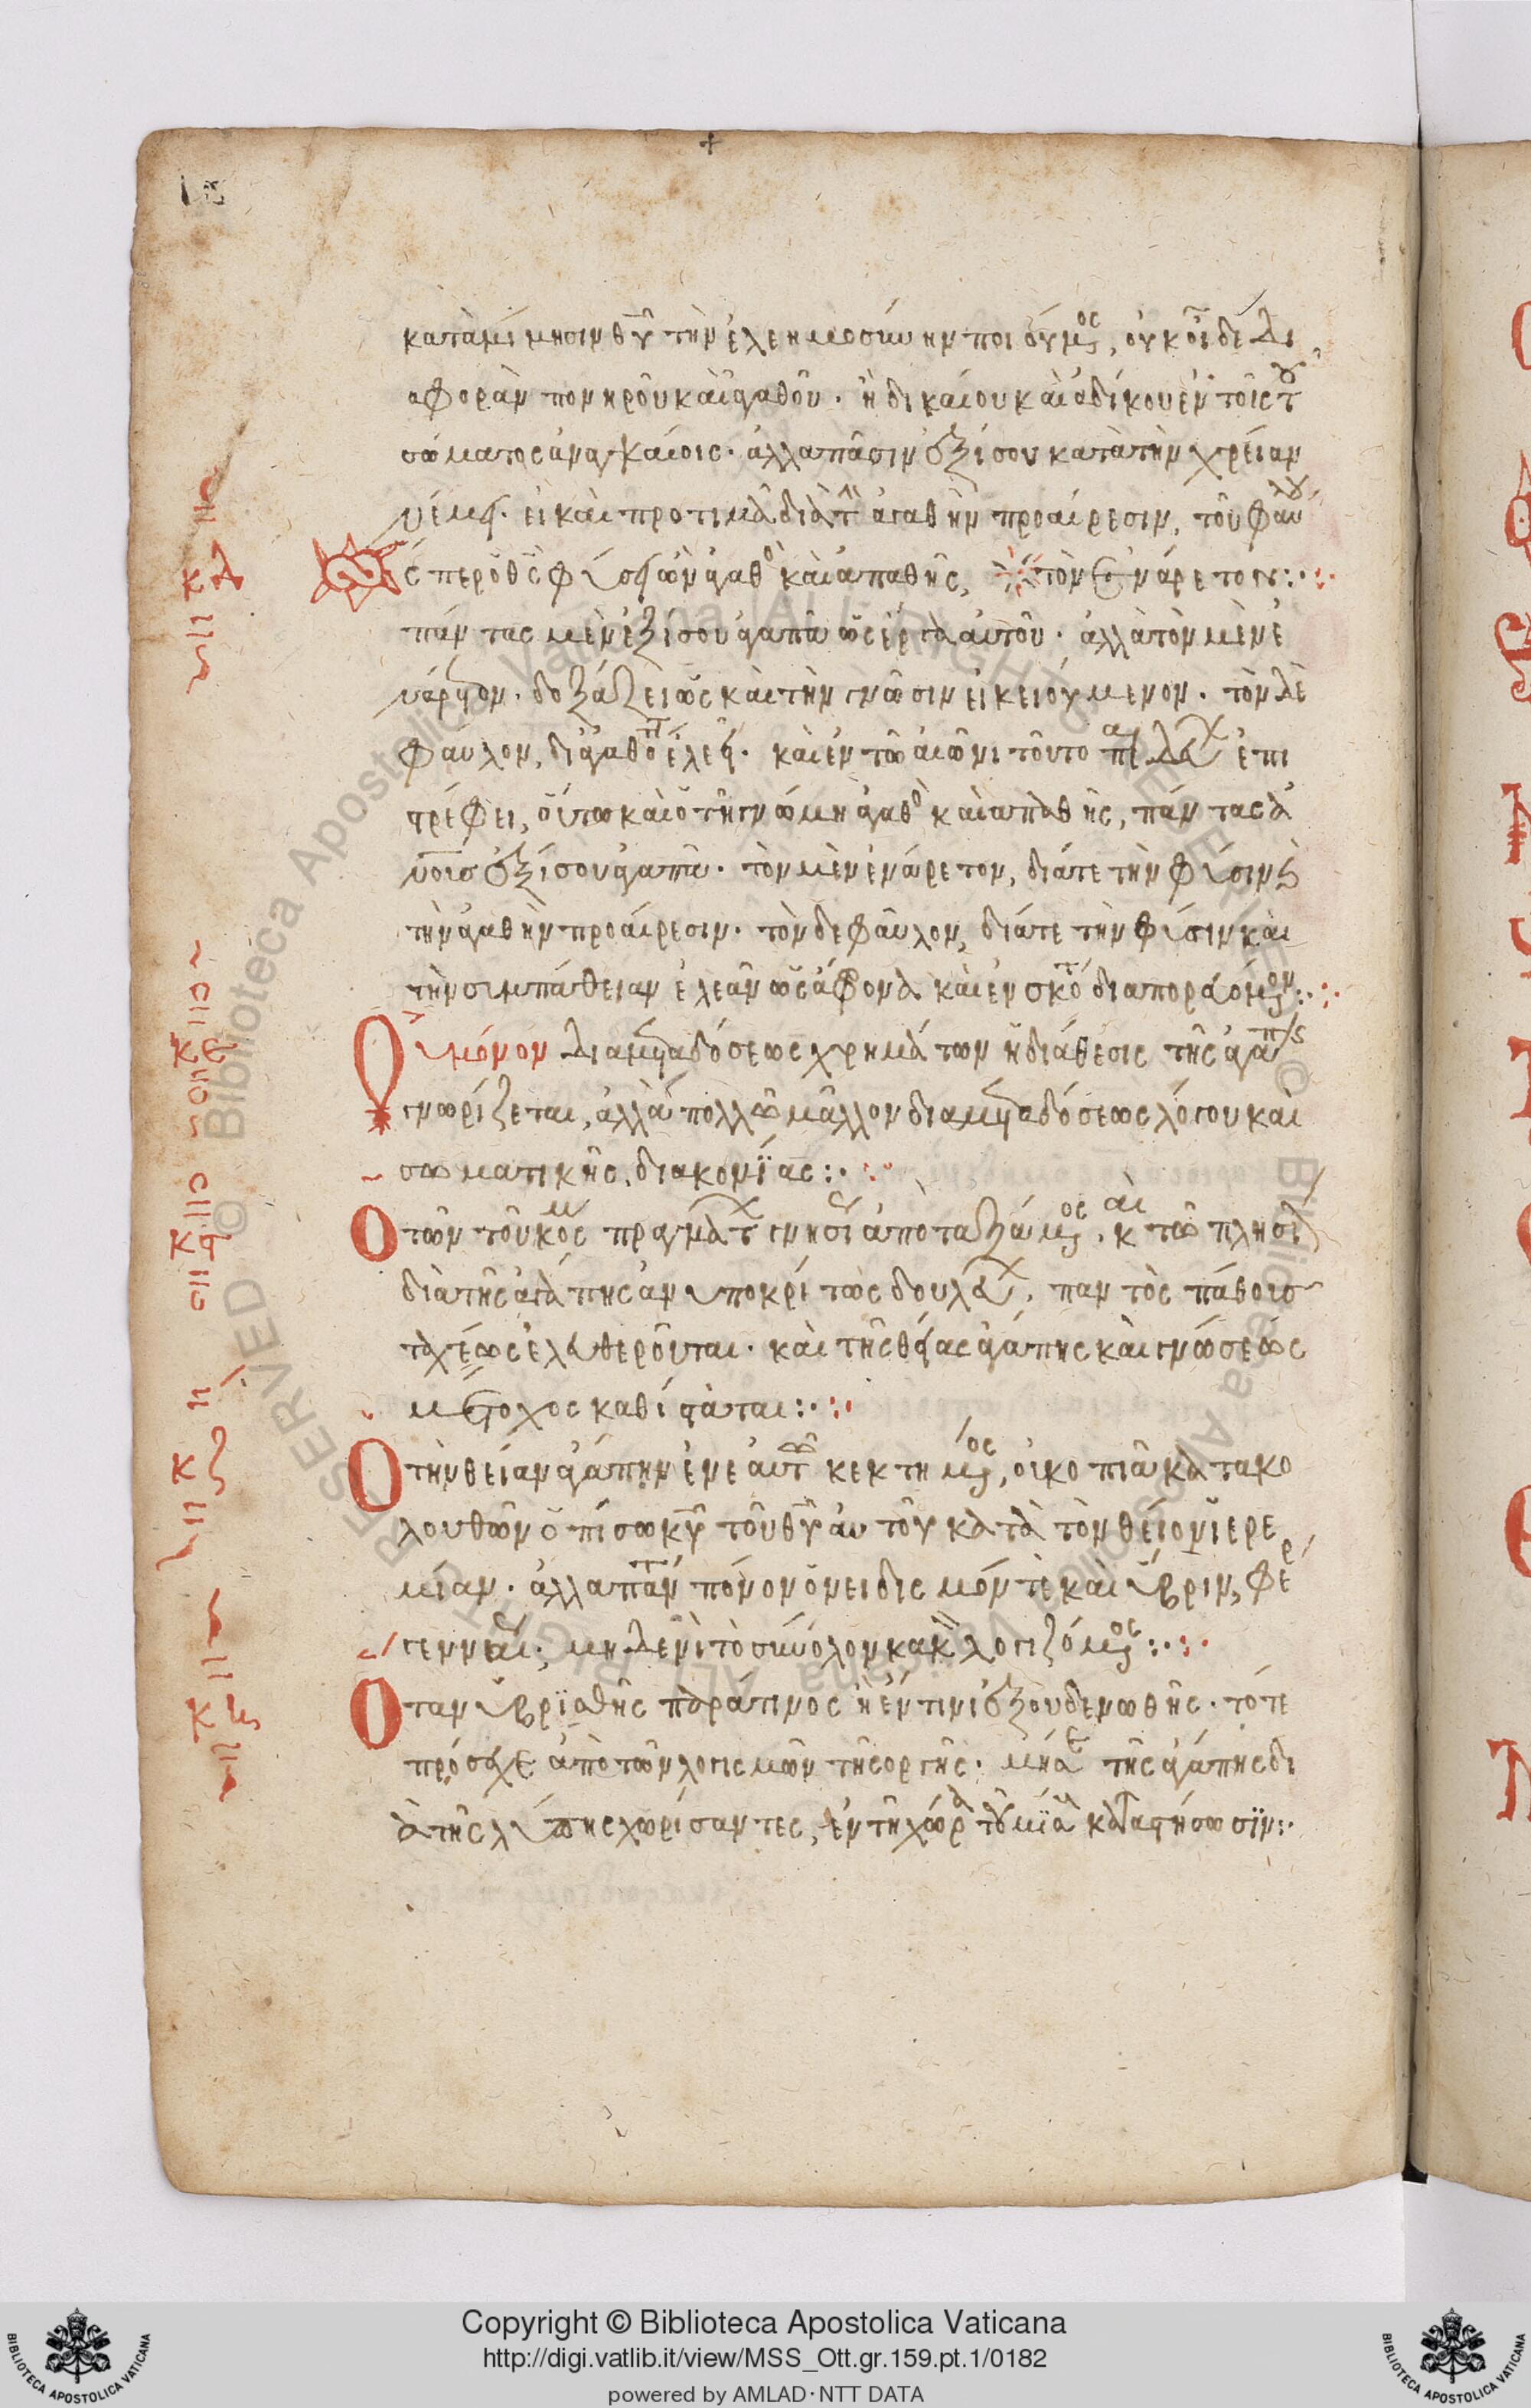 κατὰ μίμησιν θῦ τὴν ἐλεημοσύνην ποιούμενος, οὐκ οἶδε δι
αφορὰν πονηροῦ καὶ ἀγαθοῦ. ἢ δικαίου καὶ ἀδίκου ἐν τοῖς τοῦ
σώματος ἀναγκαίοις. ἀλλα πᾶσιν ἐξίσου κατὰ τὴν χρείαν
νέμει. εἰ καὶ προτιμᾶ διὰ τὴν ἀγαθὴν προαίρεσιν, τοῦ φαύλου
ὥσπερ ὁ θς φύσει ὢν ἀγαθὸς καὶ ἀπαθὴς, τὸν ἐνάρετον:·
πάντας μὲν ἐξίσου ἀγαπᾶ ὡς ἔργα αὐτοῦ. ἀλλὰ τὸν μὲν ἐ
νάρετον. δοξάζει ὡς καὶ τὴν γνῶσιν εἰκειούμενον. τὸν δὲ
φαῦλον, δι ἀγαθότητα ἐλεεῖ. καὶ ἐν τῶ αἰῶνι τοῦτο παιδεύων ἐπι
στρέφει, οὕτω καὶ ὁ τῆ γνώμη ἀγαθὸς καὶ απαθὴς, πάντας ἀ
νους ἐξίσου ἀγαπᾶ. τὸν μὲν ἐνάρετον, διά τε τὴν φύσιν καὶ
τὴν ἀγαθὴν προαίρεσιν. τὸν δε φαῦλον, διά τε τὴν φύσιν καὶ
τὴν συμπάθειαν ἐλεῶν ὡς ἄφρονα καὶ ἐν σκότει διαπορευόμενον:·
Οὐ μόνον δια μεταδόσεως χρημάτων ἡ διάθεσις τῆς ἀγάπης
γνωρίζεται, ἀλλὰ πολλῶ μᾶλλον δια μεταδόσεως λόγου καὶ
σωματικῆς διακονίας:·
Ο τῶν τοῦ κόσμου πραγμάτων γνησίως ἀποταξάμενος, καὶ τῶ πλησίον
διὰ τῆς ἀγάπης ἀνυποκρίτως δουλεύων, παντὸς πάθους
ταχέως ἐλευθεροῦται. καὶ τῆς θείας ἀγάπης καὶ γνώσεως
μέτοχος καθίσταται:·
Ο τὴν θείαν ἀγάπην ἐν ἑαυτῶ κεκτημένος, οὐ κοπιᾶ κατακο
λουθῶν ὀπίσω κῦ τοῦ θῦ αὐτοῦ κατὰ τὸν θεῖον ἱερε
μίαν. ἀλλα πάντα πόνον ὀνειδισμόν τὲ καὶ ὕβριν, φέρει
γενναίως, μηδενὶ τὸ σύνολον κακὰ λογιζόμενος:·
Οταν ὑβρισθῆς παρά τινος ἢ ἔν τινι ἐξουδενωθῆς. τότε
πρόσεχε ἀπὸ τῶν λογισμῶν τῆς ὀργῆς. μή σε τῆς ἀγάπης δι
ὰ τῆς λύπης χωρίσαντες, ἐν τῆ χώρα τοῦ μίσους καταστήσωσιν:·
Copyright © Biblioteca Apostolica Vaticana
http://digi.vatlib.it/view/MSS_Ott.gr.159.pt.1/0182
powered by AMLAD·NTT DATA